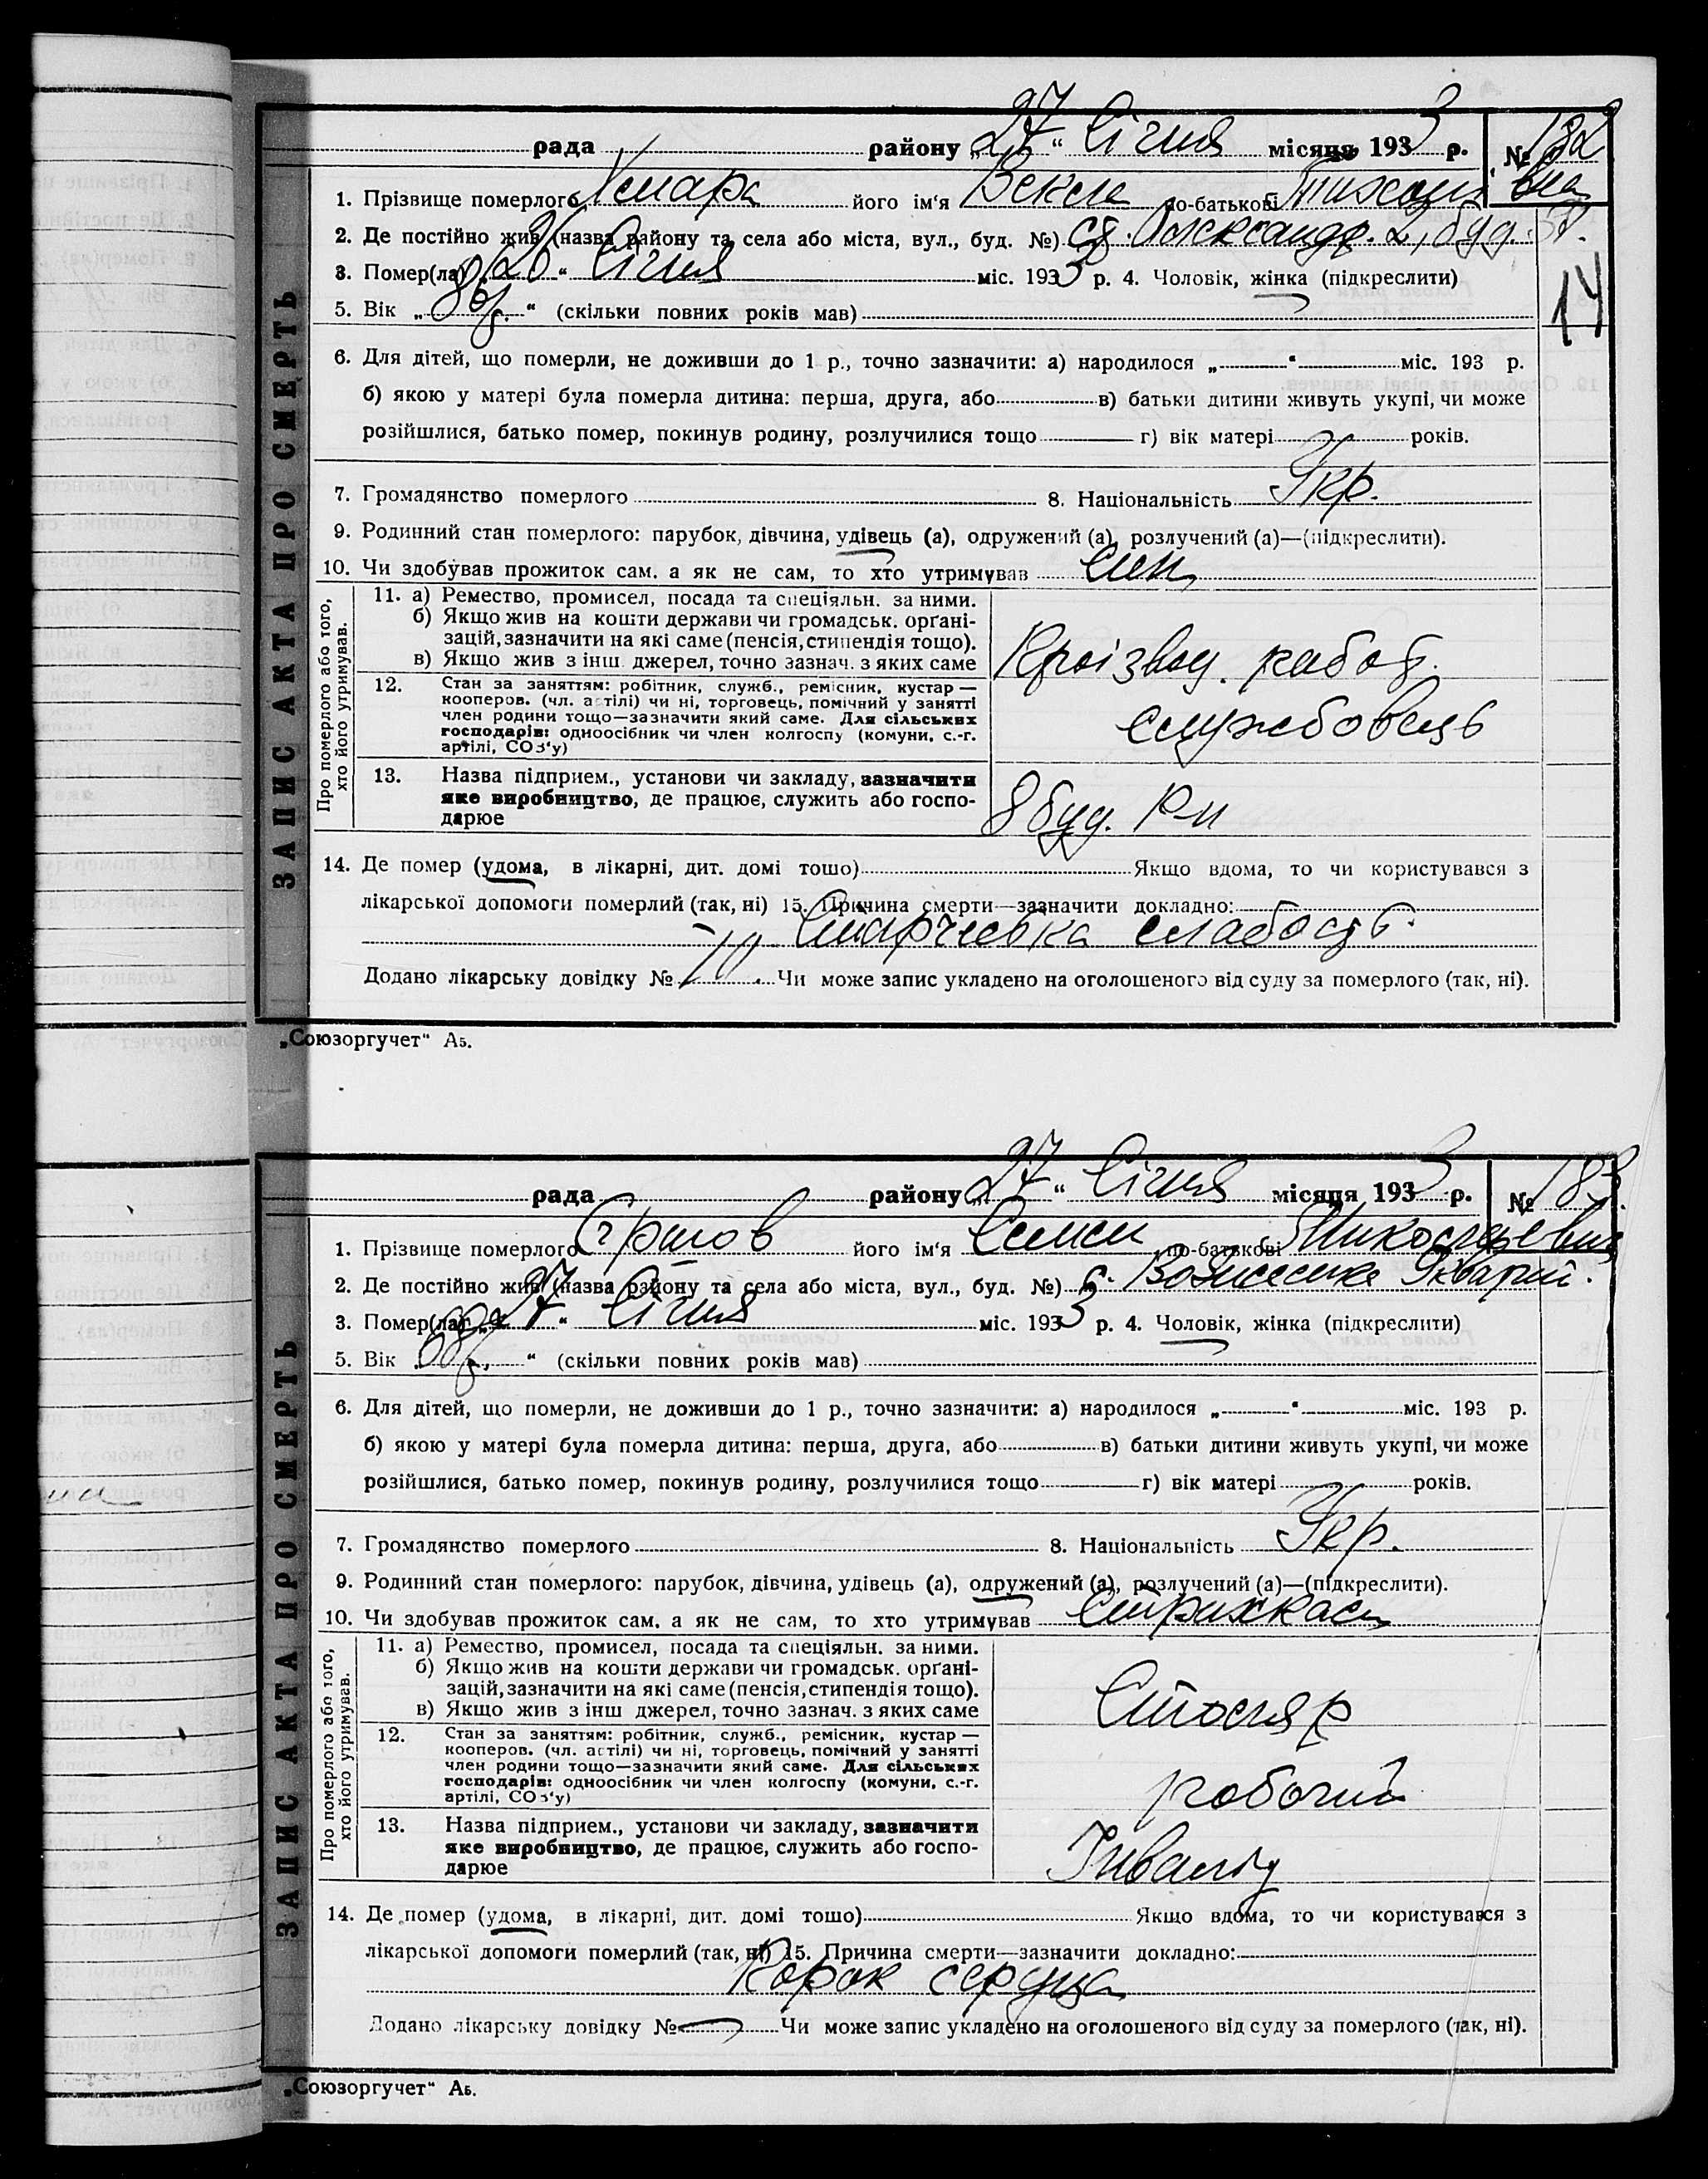 рада району „27“ Січня місяця 1933 р. № 182
1. Прізвище померлого Хмара його ім‘я Векла по-батькові Тихоновна
2. Де постійно жив (назва району та села або міста, вул., буд. №) ст. Олександр. 2, буд. 57.
3. Помер(ла) „26“ Січня міс. 1933 р. 4. Чоловік, жінка (підкреслити)
14
5. Вік „86р.“ (скільки повних років мав)
6. Для дітей, що померли, не доживши до 1 р., точно зазначити: а) народилося „ “ міс. 193 р.
б) якою у матері була померла дитина: перша, друга, або в) батьки дитини живуть укупі, чи може
розійшлися, батько помер, покинув родину, розлучилися тощо г) вік матері років.
7. Громадянство померлого 8. Національність Укр.
9. Родинний стан померлого: парубок, дівчина, удівець (а), одружений (а), розлучений (а)—(підкреслити).
10. Чи здобував прожиток сам, а як не сам, то хто утримував син
ЗАПИС АКТА ПРО СМЕРТЬ
Про померлого або того,
хто його утримував.
11. а) Ремество, промисел, посада та спеціяльн. за ними.
б) Якщо жив на кошти держави чи громадськ. орґані-
зацій, зазначити на які саме (пенсія, стипендія тощо).
в) Якщо жив з інш. джерел, точно зазнач. з яких саме
Кроізвод. работ.
12. Стан за заняттям: робітник, служб., ремісник, кустар —
кооперов. (чл. астілі) чи ні, торговець, помічний у занятті
член родини тощо—зазначити який саме. Для сільських
господарів: одноосібник чи член колгоспу (комуни, с.-г.
артілі, СОЗ‘у)
службовець
13. Назва підприєм., установи чи закладу, зазначити
яке виробництво, де працює, служить або госпо-
дарює
8 буд. р-н
14. Де помер (удома, в лікарні, дит. домі тощо) Якщо вдома, то чи користувався з
лікарської допомоги померлий (так, ні) 15. Причина смерти—зазначити докладно:
Старческа слабость.
Додано лікарську довідку № Чи може запис укладено на оголошеного від суду за померлого (так, ні).
„Союзоргучет“ А5.
рада району „27“ Січня місяця 1933 р. № 183
1. Прізвище померлого його ім‘я Семен по-батькові Миколаевич
2. Де постійно жив (назва району та села або міста, вул., буд. №) с. Вознесенке
3. Помер(ла) „27“ Січня міс. 1933 р. 4. Чоловік, жінка (підкреслити)
5. Вік „68р.“ (скільки повних років мав)
6. Для дітей, що померли, не доживши до 1 р., точно зазначити: а) народилося „ “ міс. 193 р.
б) якою у матері була померла дитина: перша, друга, або в) батьки дитини живуть укупі, чи може
розійшлися, батько помер, покинув родину, розлучилися тощо г) вік матері років.
7. Громадянство померлого 8. Національність Укр.
9. Родинний стан померлого: парубок, дівчина, удівець (а), одружений (а), розлучений (а)—(підкреслити).
10. Чи здобував прожиток сам, а як не сам, то хто утримував Страхкаса
ЗАПИС АКТА ПРО СМЕРТЬ
Про померлого або того,
хто його утримував.
11. а) Ремество, промисел, посада та спеціяльн. за ними.
б) Якщо жив на кошти держави чи громадськ. орґані-
зацій, зазначити на які саме (пенсія, стипендія тощо).
в) Якщо жив з інш джерел, точно зазнач. з яких саме
Столяр
12. Стан за заняттям: робітник, служб., ремісник, кустар —
кооперов. (чл. астілі) чи ні, торговець, помічний у занятті
член родини тощо—зазначити який саме. Для сільських
господарів: одноосібник чи член колгоспу (комуни, с.-г.
артілі, СОЗ‘у)
робочий
13. Назва підприєм., установи чи закладу, зазначити
яке виробництво, де працює, служить або госпо-
дарює
Інвалід
14. Де помер (удома, в лікарні, дит. домі тощо) Якщо вдома, то чи користувався з
лікарської допомоги померлий (так, ні) 15. Причина смерти—зазначити докладно:
Порок сердца
Додано лікарську довідку № Чи може запис укладено на оголошеного від суду за померлого (так, ні).
„Союзоргучет“ А5.